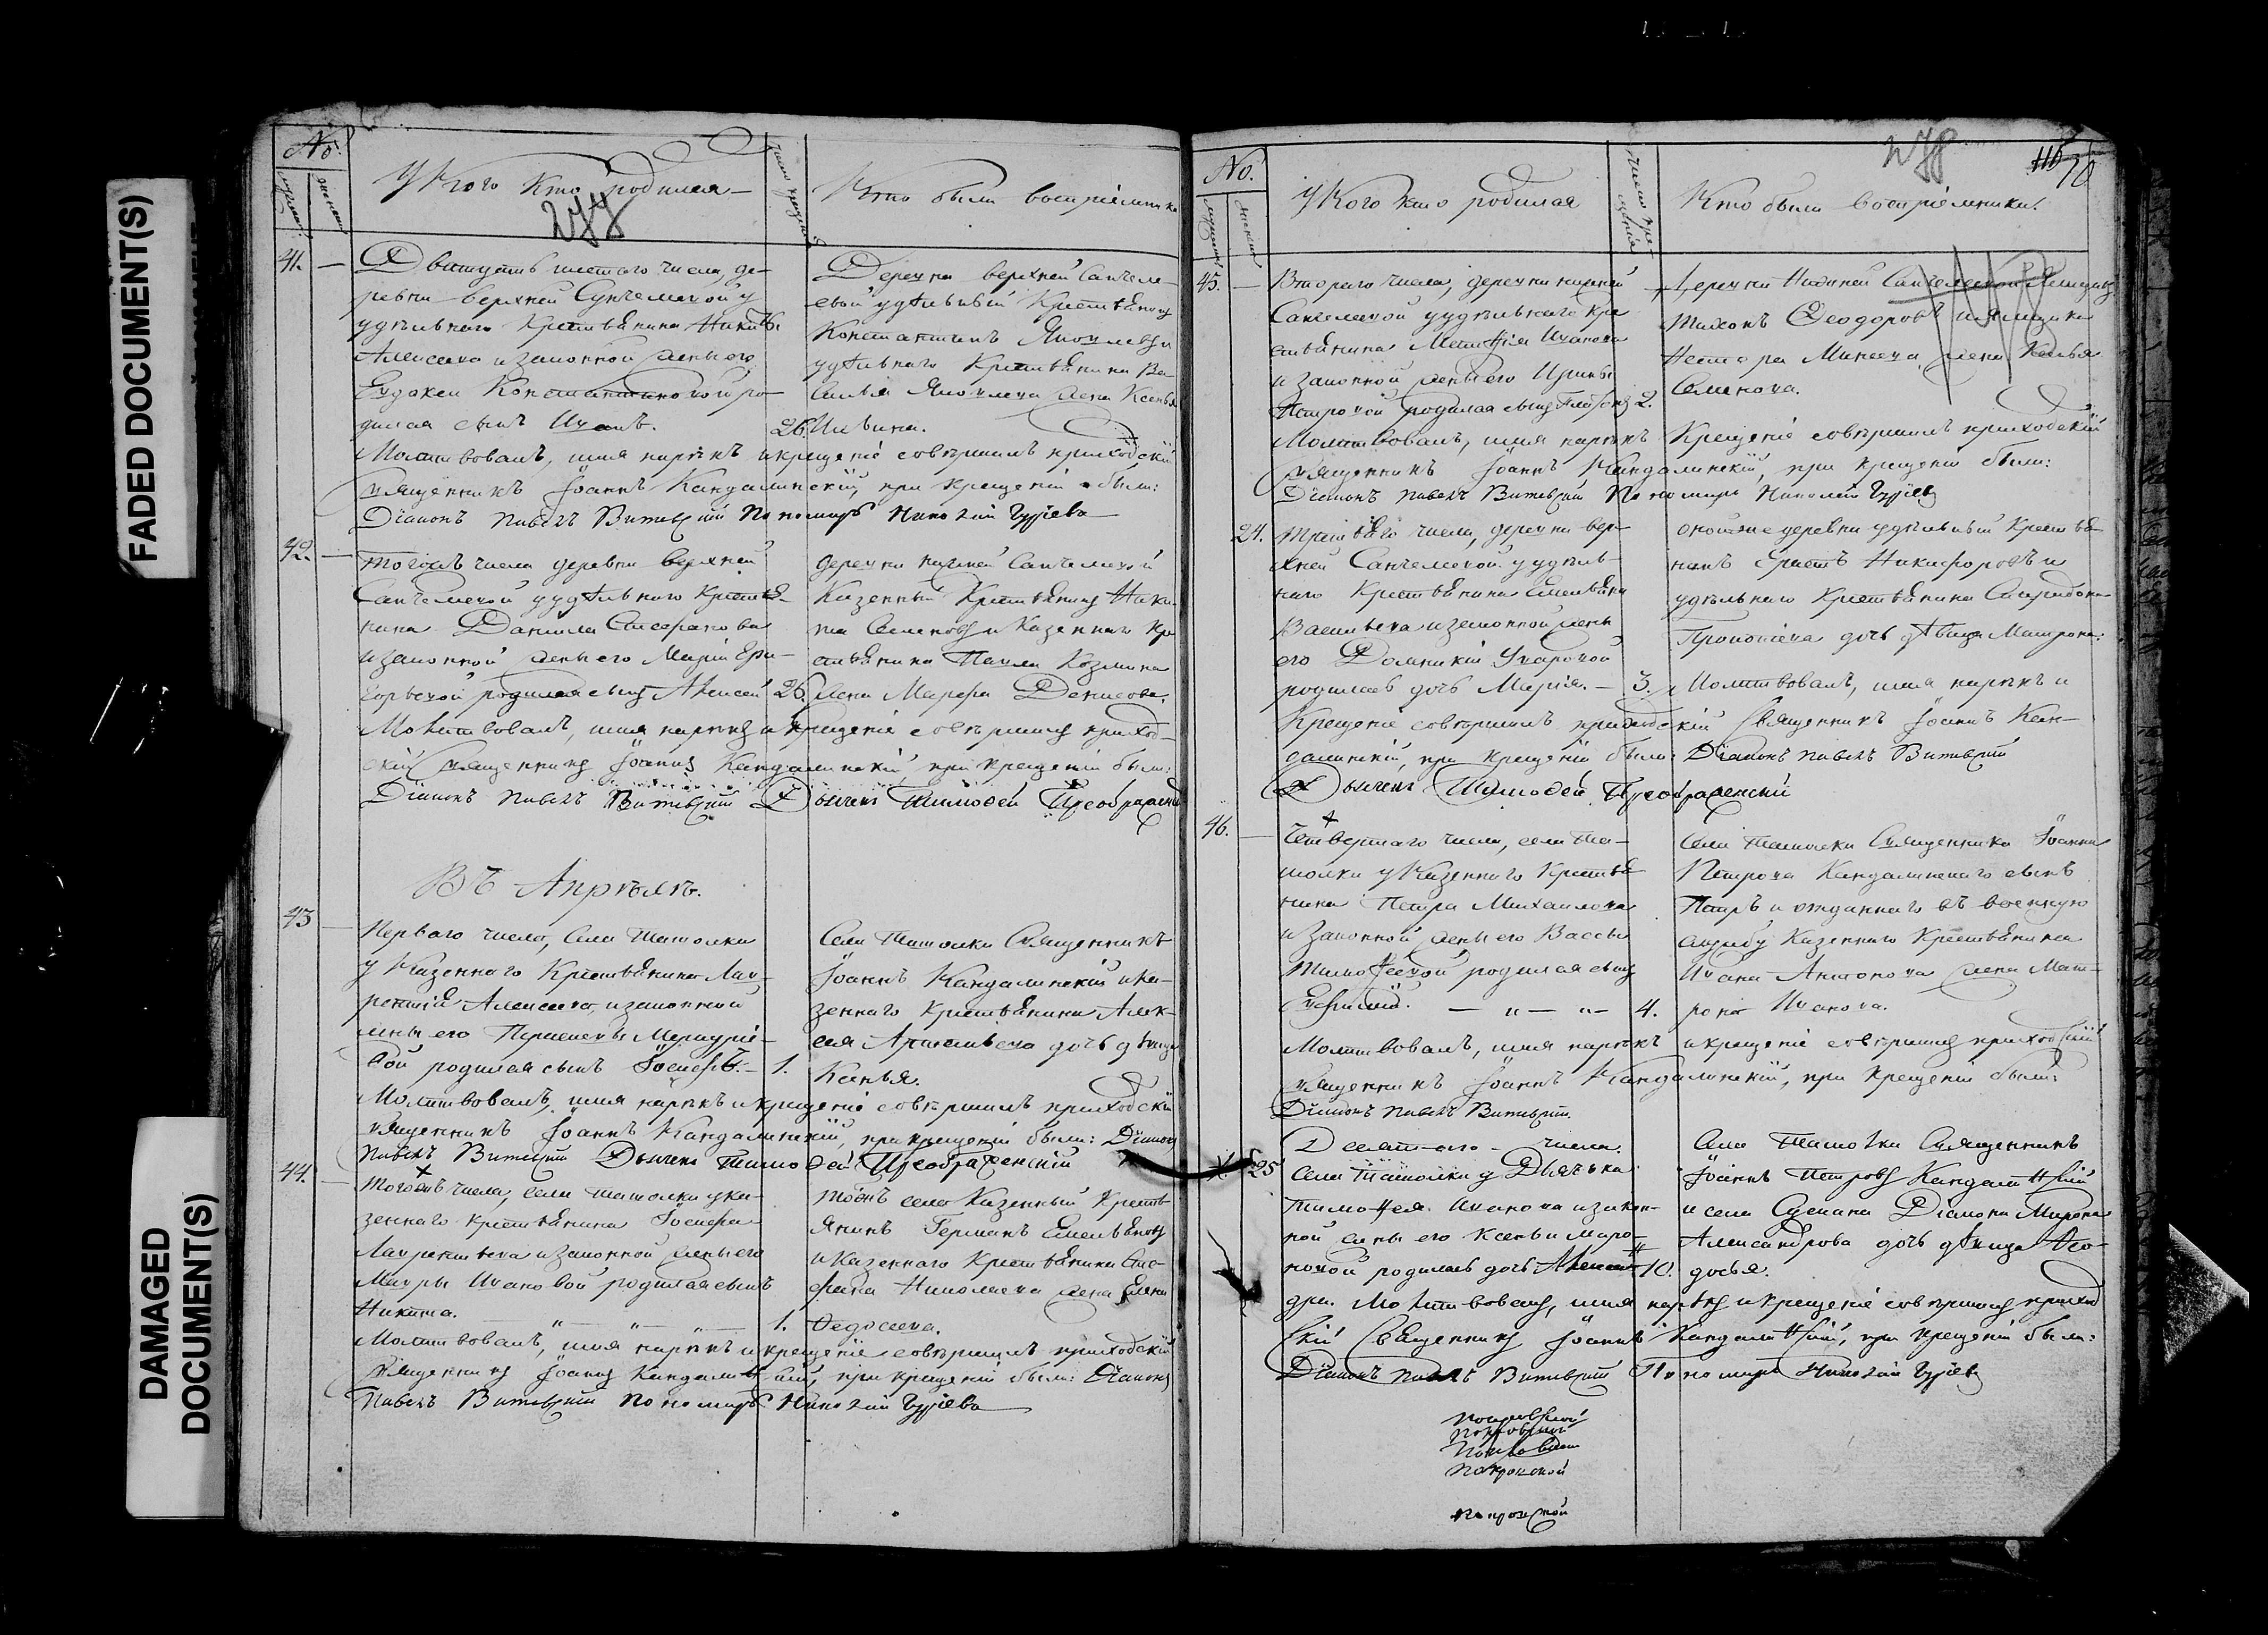 FADED DOCUMENT(S)
DAMAGED
DOCUMENT(S)
№.
У Кого Кто родился
Число крещенія
Кто были воспріемники
277
41.
Двадцать шестаго числа, де-
ревни верхней Санчелеевой у
удѣльнаго Крестьянина Никиты
Алексѣева и законной жены его
Евдокеи Константиновой ро-
дился сынъ Иванъ.
26.
Деревни верхней Санчеле-
евой удѣльный Крестьянинъ
Константинъ Яковлевъ и
удѣльнаго Крестьянина Ва-
силья Яковлева жена Ксенья
Ильина.
Молитвовалъ, имя нарѣкъ и крещеніе совѣршилъ приходскій
священникъ Іоаннъ Кандалинскій, при крещеніи были:
Діаконъ Павелъ Витевскій Пономарь Николай Гурьевъ
42.
Тогожъ числа деревни верхней
Санчелеевой у удѣльнаго Крестья-
нина Данила
и законной жены его Маріи Гри-
горьевой родился сынъ Алексей
26.
деревни нижней Санчелеевой
Казенный Крестьянинъ Ники-
та Семеновъ и Казеннаго Кре
стьянина Павла Козмина
жена Марфа Денисова.
Молитвовалъ, имя нарѣкъ и крещеніе совѣршилъ приход-
скій Священникъ Іоаннъ Кандалинскій, при крещеніи были:
Діаконъ Павелъ Витевскій Дьячекъ Тимофей Преображенскій
Въ Апрѣлѣ.
43
Перваго числа, Села Ташолки
у Казеннаго Крестьянина Лав-
рентія Алексѣева, и законной
жены его Меркурье-
вой родился сынъ Іосифъ.
1.
Села Ташолки Священникъ
Іоаннъ Кандалинскій и Ка-
зеннаго Крестьянина Алек-
сея дочь дѣвица
Ксенья.
Молитвовалъ, имя нарѣкъ и крещеніе совѣршилъ приходскій
священникъ Іоаннъ Кандалинскій, при крещеніи были: Діаконъ
Павелъ Витевскій Дьячекъ Тимофей Преображенскій
44.
Тогожъ числа, села Ташолки у ка-
зеннаго крестьянина Іосифа
Лаврентьева и законной жены его
Мавры Ивановой родился сынъ
Никита.
1.
тожъ село Казенный Кресть-
янинъ Германъ Емельяновъ
и Казеннаго Крестьянина Сте-
фана Николаева жена Елена
Федосеева.
Молитвовалъ, имя нарѣкъ и крещеніе совѣршилъ приходскій
священникъ Іоаннъ Кандалинскій, при крещеніи были: Діаконъ
Павелъ Витевскій Пономарь Николай Гурьевъ
278
116
70
№.
У Кого кто родился
Число крещенія
Кто были воспріемники.
45.
Втораго числа, деревни нижней
Санчелеевой у удѣльнаго Кре
стьянина Матфея Иванова
и законной жены его Ирины
Петровой родился сынъ
2.
Деревни Нижней Санчелеевой
Тихонъ Феодоровъ и
Нестора Минеева жена Ксенья
Семенова.
Молитвовалъ, имя нарѣкъ Крещеніе совѣршилъ приходскій
священникъ Іоаннъ Кандалинскій, при крещеніи были:
Діаконъ Павелъ Витевскій Пономарь Николай Гурьевъ
24.
Третьяго числа, деревни вер-
хней Санчелеевой у удѣль-
наго Крестьянина Емельяна
Васильева и законной жены
его Домникіи Уваровой
родилась дочь Марія.
3.
оной же деревни удѣльный Крестья
нинъ Никифоровъ и
удѣльнаго Крестьянина Спиридона
Прокопьева дочь дѣвица Матрона:
Молитвовалъ, имя нарѣкъ и
Крещеніе совѣршилъ приходскій Священникъ Іоаннъ Кан-
далинскій, при крещеніи были: Діаконъ Павелъ Витевскій
Дьячекъ Тимофей Преображенскій
46.
Четвертаго числа, села Та-
шолки у Казеннаго Крестья
нина Петра Михаилова
и Законной жены его Вассы
Тимофеевой родился сынъ
Евфимій.
4.
Села Ташолки Священника Іоанна
Петрова Кандалинскаго сынъ
Петръ и отданнаго въ военную
службу Казеннаго Крестьянина
Ивана Антонова жена Мат-
рона Иванова.
Молитвовалъ, имя нарѣкъ и крещеніе совѣршилъ приходскій
священникъ Іоаннъ Кандалинскій, при крещеніи были:
Діаконъ Павелъ Витевскій.
25
Десятаго числа.
Села Ташолки у Дьячька
Тимофея Иванова и закон-
ной жены его Ксеньи Миро-
новой родилась дочь Алексан-
10.
Села Ташолки Священникъ
Іоаннъ Петровъ Кандалинскій
и села Діакона Мирона
Александрова дочь дѣвица Фео-
досья.
дра. Молитвовалъ, имя нарѣкъ и крещеніе совѣршилъ приход
скій Священникъ Іоаннъ Кандалинскій, при крещеніи были:
Діаконъ Павелъ Витевскій Пономарь Николай Гурьевъ
Покровской
Покровской
Покровской
Покровской
Покровской